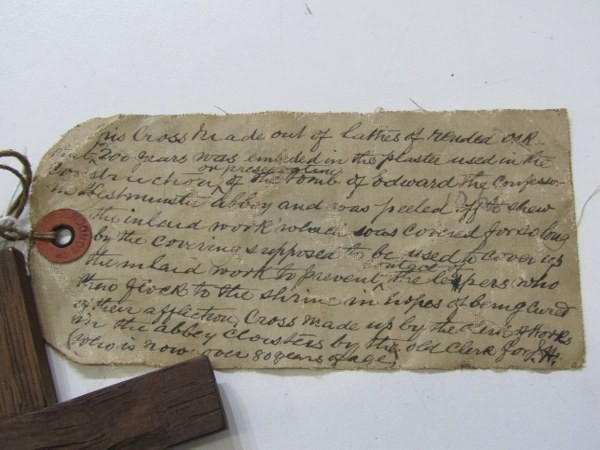 his Cross Made out of lathes of rended oak
that 1,200 years was embeded in the plaster used in the
construction or preserving of the Tomb of Edward the Confessor
in Westminster Abbey and was peeled off to shew
the inlaid work which was covered for so long
by the covering supposed to be used to cover up
the inlaid work to prevent contact the lepers who
thro flock to the shrine in hopes of being cured
of their affliction, Cross made up by the Clerk of Works
in the abbey cloisters by the old Clerk for J.H.
(who is now over 80 years of age)